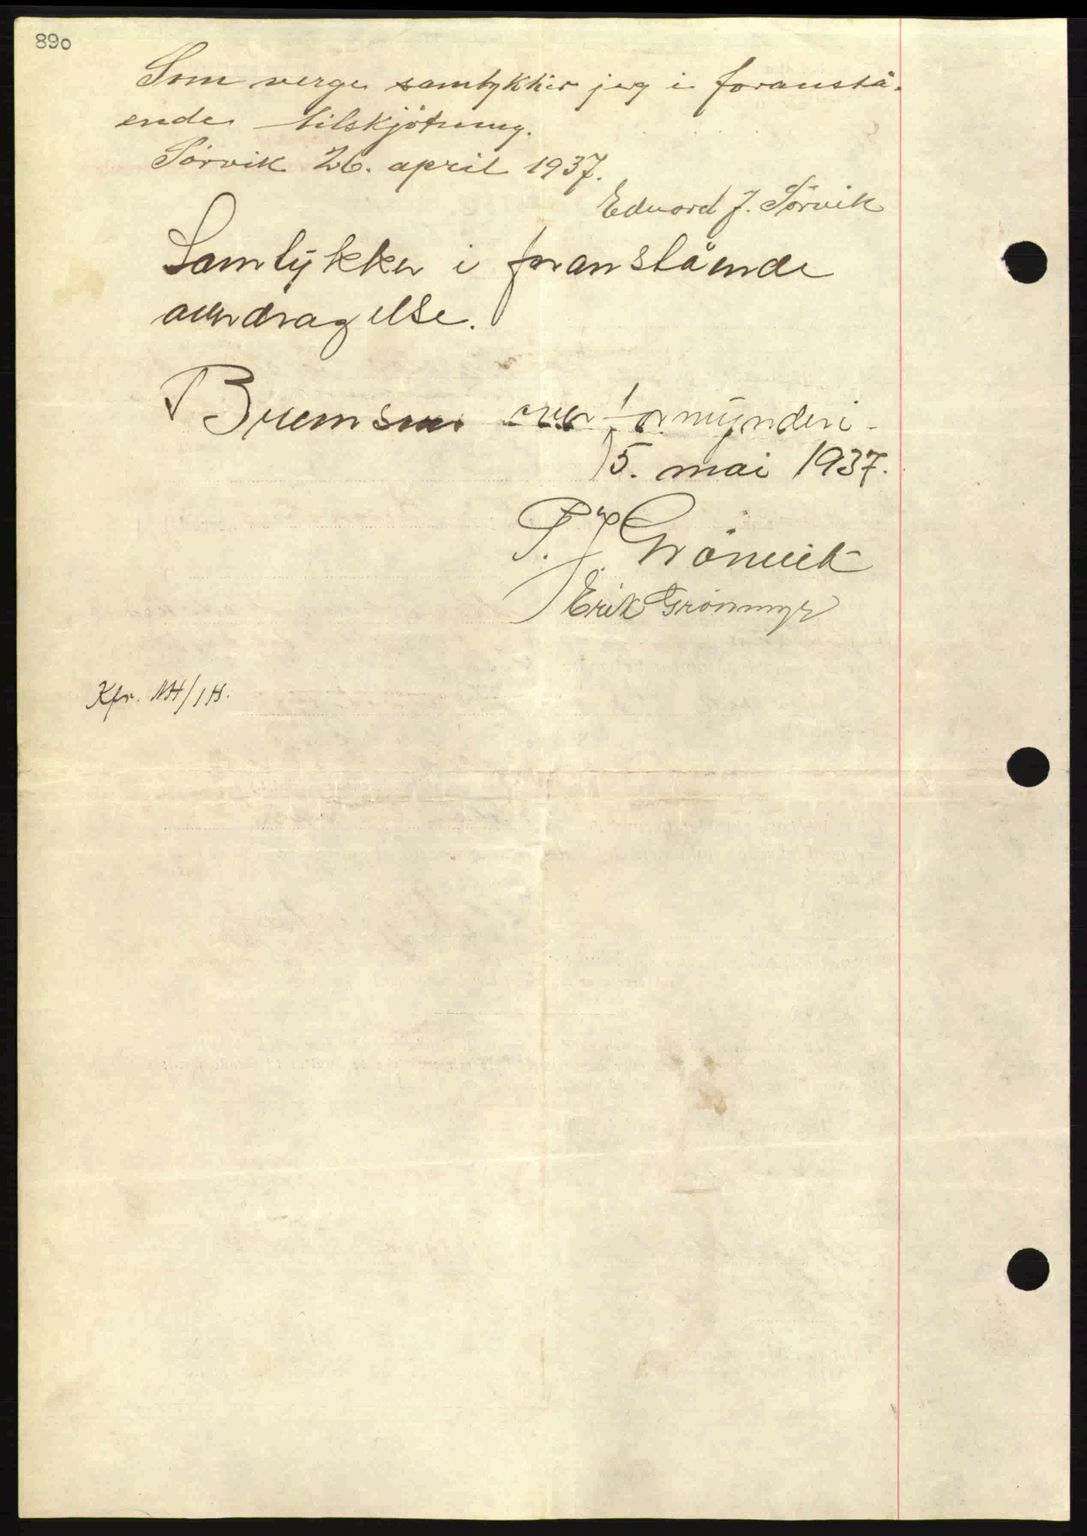 890
Som verge samtykker jeg i foranstå-
ende tilskjötning.
Sørvik 26. april 1937.
Edvard J. Sørvik
Samtykker i foranstående
avhdragelse.
Bremsnes overformynderi
15. mai 1937.
P. J. Grönvik
Erik Grønmyr
Kfr. NH/IH.